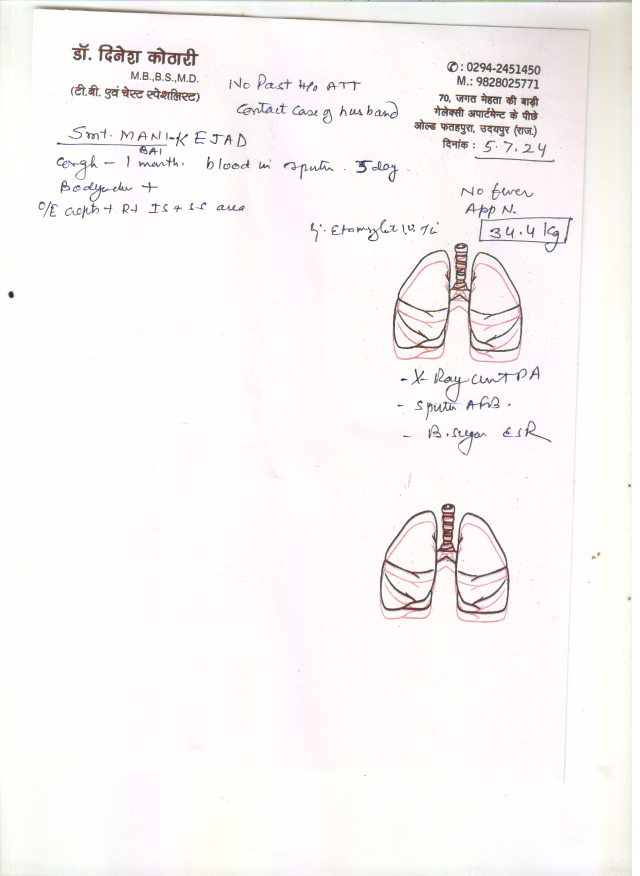 डॉ. दिनेश कोठारी
M.B.,B.S.,M.D.
(टी.बी. एवं चेस्ट स्पेशलिस्ट)
No Past H/o ATT
Contact Case of husband
✆: 0294-2451450
M.: 9828025771
70, जगत मेहता की बाड़ी
गेलेक्सी अपार्टमेन्ट के पीछे
ओल्ड फतहपुरा, उदयपुर (राज.)
दिनांक : 5.7.24
Smt. MANI-KEJAD
BAI
Cough - 1 month. blood in sputum. 5 day.
Bodyache +
O/E crepts + Rt IS + SS area
No fever
App N.
34.4 Kg
I.V.
- X-Ray chest PA
- Sputum AFB.
- B. Sugar ESR